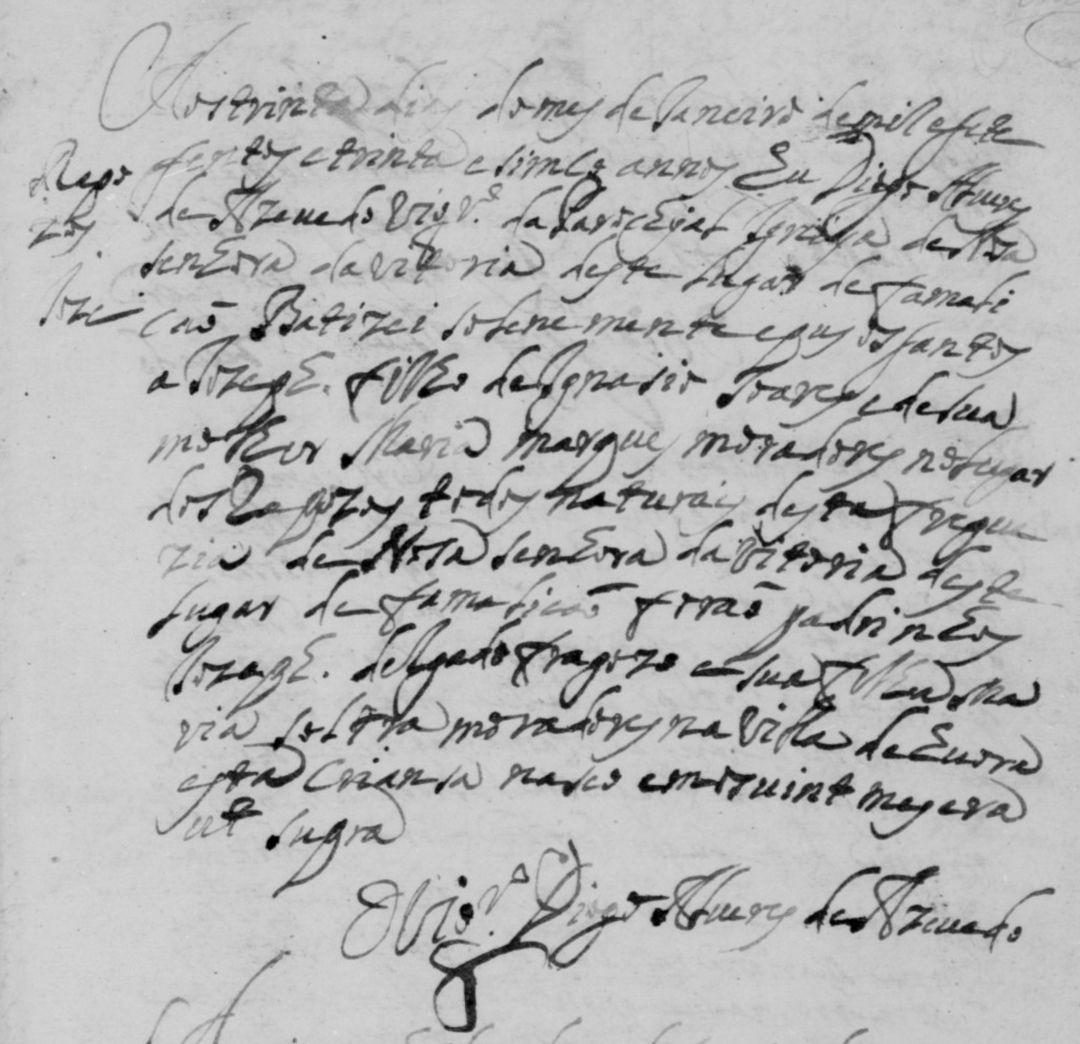 Aos trinta dias do mes de Janeiro de mil e sete
sentos e trinta e sinco annos Eu Diogo Alures
de Azeuedo Vigr.º da Parochial Igreija de Nosa
Rapo
zos
Joze
senhora da vitoria deste lugar de famali
caõ Batizei solenemente e pus os santos
a Jozeph. filho de Ignasio Soares e de sua
molher Maria marques moradores no lugar
dos Rapozos todos naturais desta fregue
zia de Nosa senhora da Vitoria deste
lugar de famalicaõ foraõ padrinhos
Jozeph. delgado fragozo e sua filha Ma
ria soltra moradores na Villa de Euora
esta Criansa nasco em os uint mes era
ut supra
O Vigr.º Diogo Alures de Azeuedo